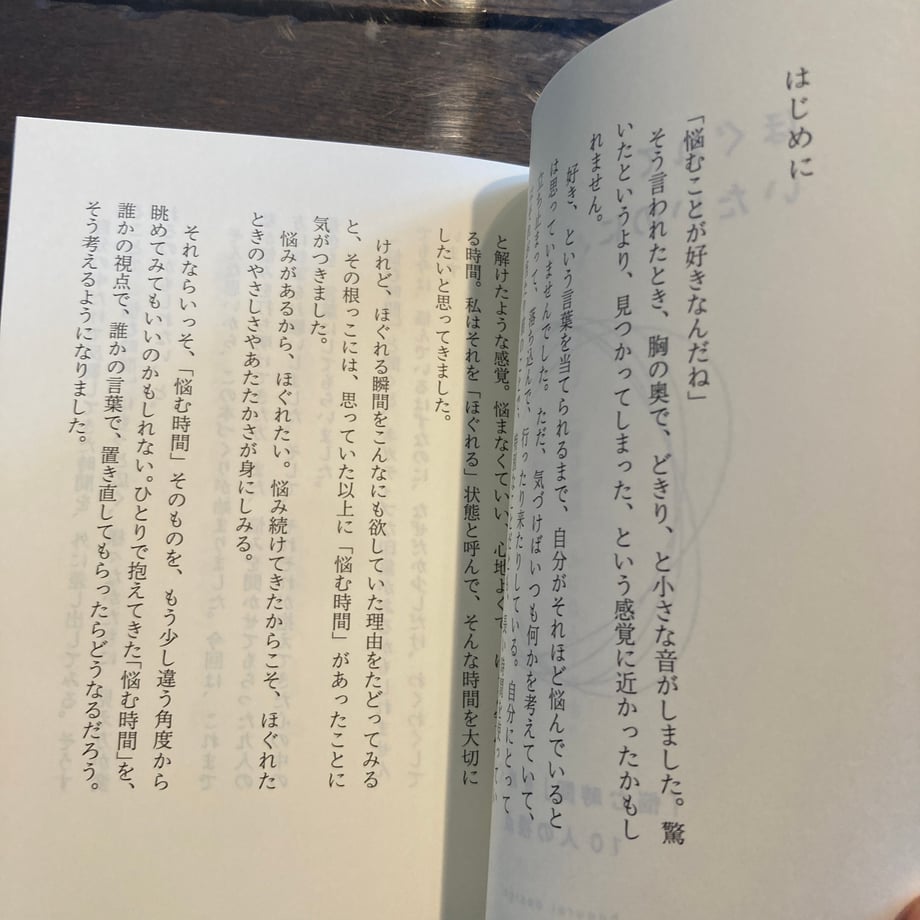 はじめに
「悩むことが好きなんだね」
そう言われたとき、胸の奥で、どきり、と小さな音がしました。驚
いたというより、見つかってしまった、という感覚に近かったかもし
れません。
好き、という言葉を当てられるまで、自分がそれほど悩んでいると
は思っていませんでした。ただ、気づけばいつも何かを考えていて、
立ち止まって、落ち込んで、行ったり来たりしている。自分にとって
と解けたような感覚。悩まなくていい、心地よくて
る時間。私はそれを「ほぐれる」状態と呼んで、そんな時間を大切に
したいと思ってきました。
けれど、ほぐれる瞬間をこんなにも欲していた理由をたどってみる
と、その根っこには、思っていた以上に「悩む時間」があったことに
気がつきました。
悩みがあるから、ほぐれたい。悩み続けてきたからこそ、ほぐれた
ときのやさしさやあたたかさが身にしみる。
それならいっそ、「悩む時間」そのものを、もう少し違う角度から
眺めてみてもいいのかもしれない。ひとりで抱えてきた「悩む時間」を、
誰かの視点で、誰かの言葉で、置き直してもらったらどうなるだろう。
そう考えるようになりました。